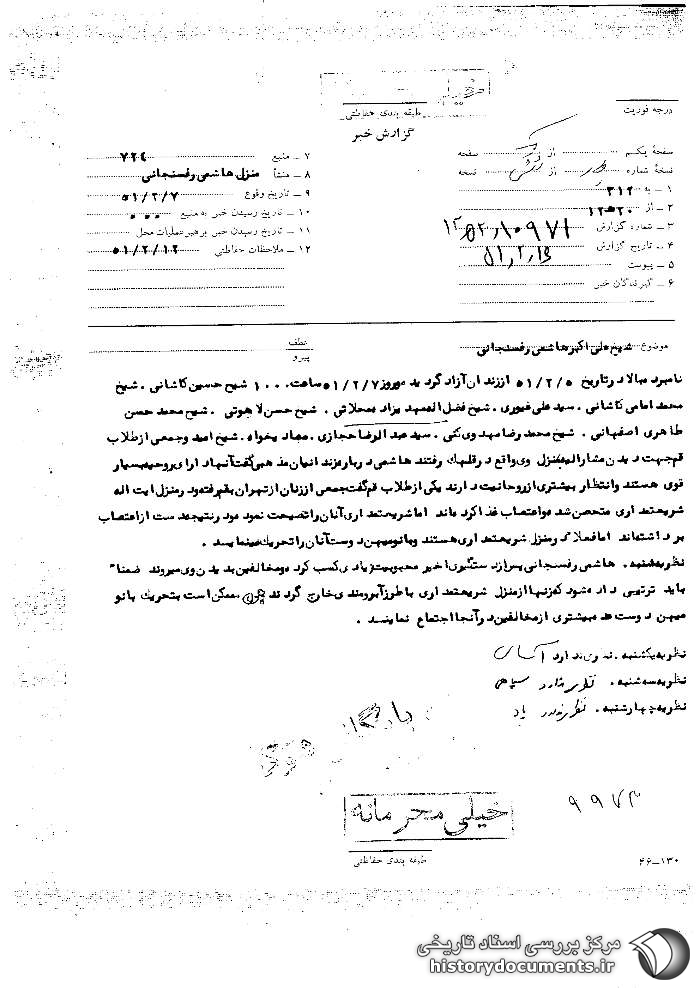 درجه فوریت
طبقه بندی حفاظتی
گزارش خبر
صفحه یکم از صفحه
نسخه شماره از نسخه
۱ ـ به ۳۱۲
۲ ـ از ۲۰ه۱۲
۳ ـ شماره گزارش
۴ ـ تاریخ گزارش
۵ ـ پیوست
۶ ـ گیرندگان خبر
۷ ـ منبع
۸ ـ منشأ منزل هاشمی رفسنجانی
۹ ـ تاریخ وقوع ۵۱/۲/۷
۱۰ ـ تاریخ رسیدن خبر به منبع ۰۰۰
۱۱ ـ تاریخ رسیدن خبر به رهبر عملیات محل
۱۲ ـ ملاحظات حفاظتی ۵۱/۲/۱۲
موضوع شیخ علی اکبر هاشمی رفسنجانی
عطف
پیرو
نامبرده بالا در تاریخ ۵۱/۲/۵ از زندان آزاد گردیده و روز ۵۱/۲/۷ ساعت ۱۰۰۰ شیخ حسین کاشانی . شیخ
محمد امامی کاشانی . سید علی غیوری . شیخ فضل الله مهدیزاده محلاتی . شیخ حسن لاهوتی . شیخ محمد حسن
طاهری اصفهانی . شیخ محمد رضا مهدوی کنی . سید عبدالرضا حجازی . شیخ امید و جمعی از طلاب
قم جهت دیدن مشارالیه به منزل وی واقع در قلهک رفتند هاشمی درباره زندانیان مذهبی گفت آنها دارای روحیه بسیار
قوی هستند و انتظار بیشتری از روحانیت دارند یکی از طلاب قم گفت جمعی از زنان از تهران به قم رفته و در منزل آیت اله
شریعتمداری متحصن شده و اعتصاب غذا کرده اند اما شریعتمداری آنان را نصیحت نموده و در نتیجه دست از اعتصاب
برداشته اند اما فعلا در منزل شریعتمداری هستند و بانو میهن دوست آنان را تحریک مینماید .
نظریه شنبه . هاشمی رفسنجانی پس از دستگیری اخیر محبوبیت زیادی کسب کرده و مخالفین به دیدن وی میروند ضمناً
باید ترتیبی داده شود که زنها از منزل شریعتمداری با طرز آبرومندی خارج گردند چون ممکن است به تحریک بانو
میهن دوست عده بیشتری از مخالفین در آنجا اجتماع نمایند .
نظریه یکشنبه . نظری ندارد
نظریه سه شنبه . نظری ندارد
نظریه چهارشنبه . نظری ندارد
خیلی محرمانه
طبقه بندی حفاظتی
۴۶ـ۱۳۰
مرکز بررسی اسناد تاریخی
historydocuments.ir